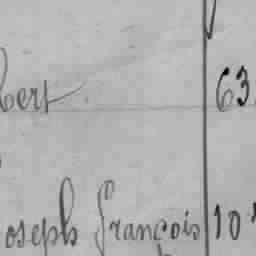 bert 63
oseph françois 10